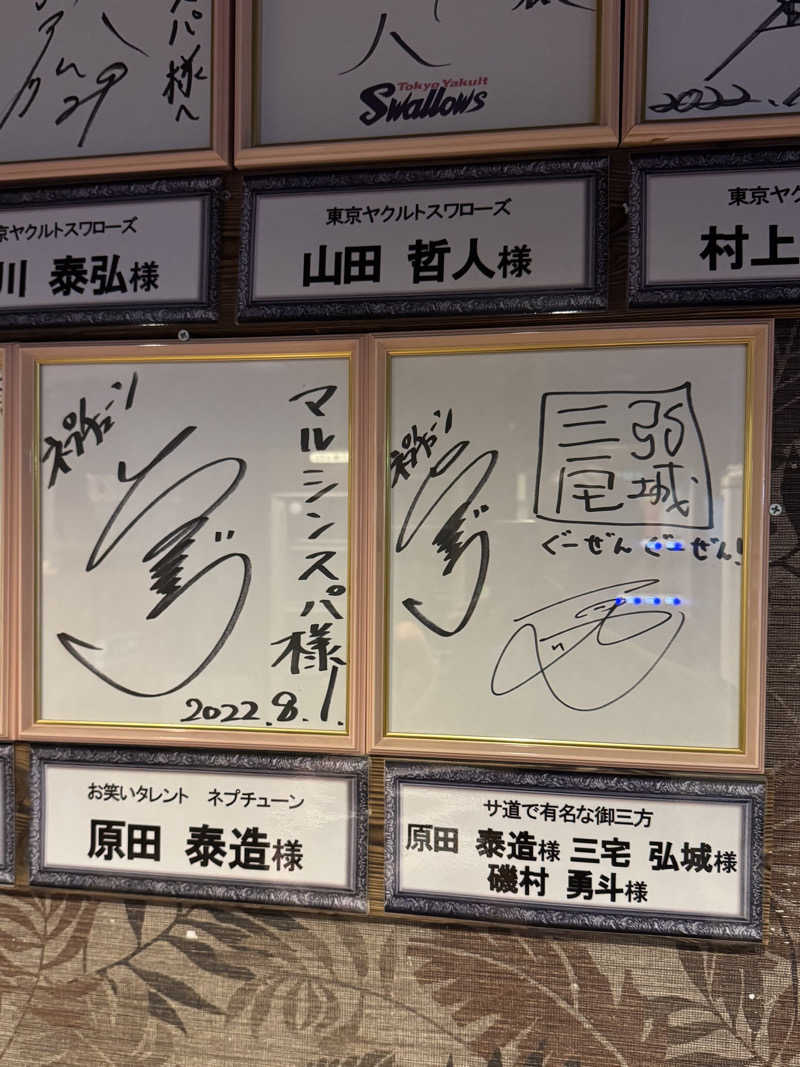 パ様へ
Tokyo Yakult
Swallows
2022.
京ヤクルトスワローズ
川 泰弘様
東京ヤクルトスワローズ
山田 哲人様
東京ヤク
村上
ネプチューン
マルシンスパ様
2022.8.1.
ネプチューン
三宅
弘城
ぐーぜんぐーぜん!
お笑いタレント ネプチューン
原田 泰造様
サ道で有名な御三方
原田 泰造様 三宅 弘城様
磯村 勇斗様